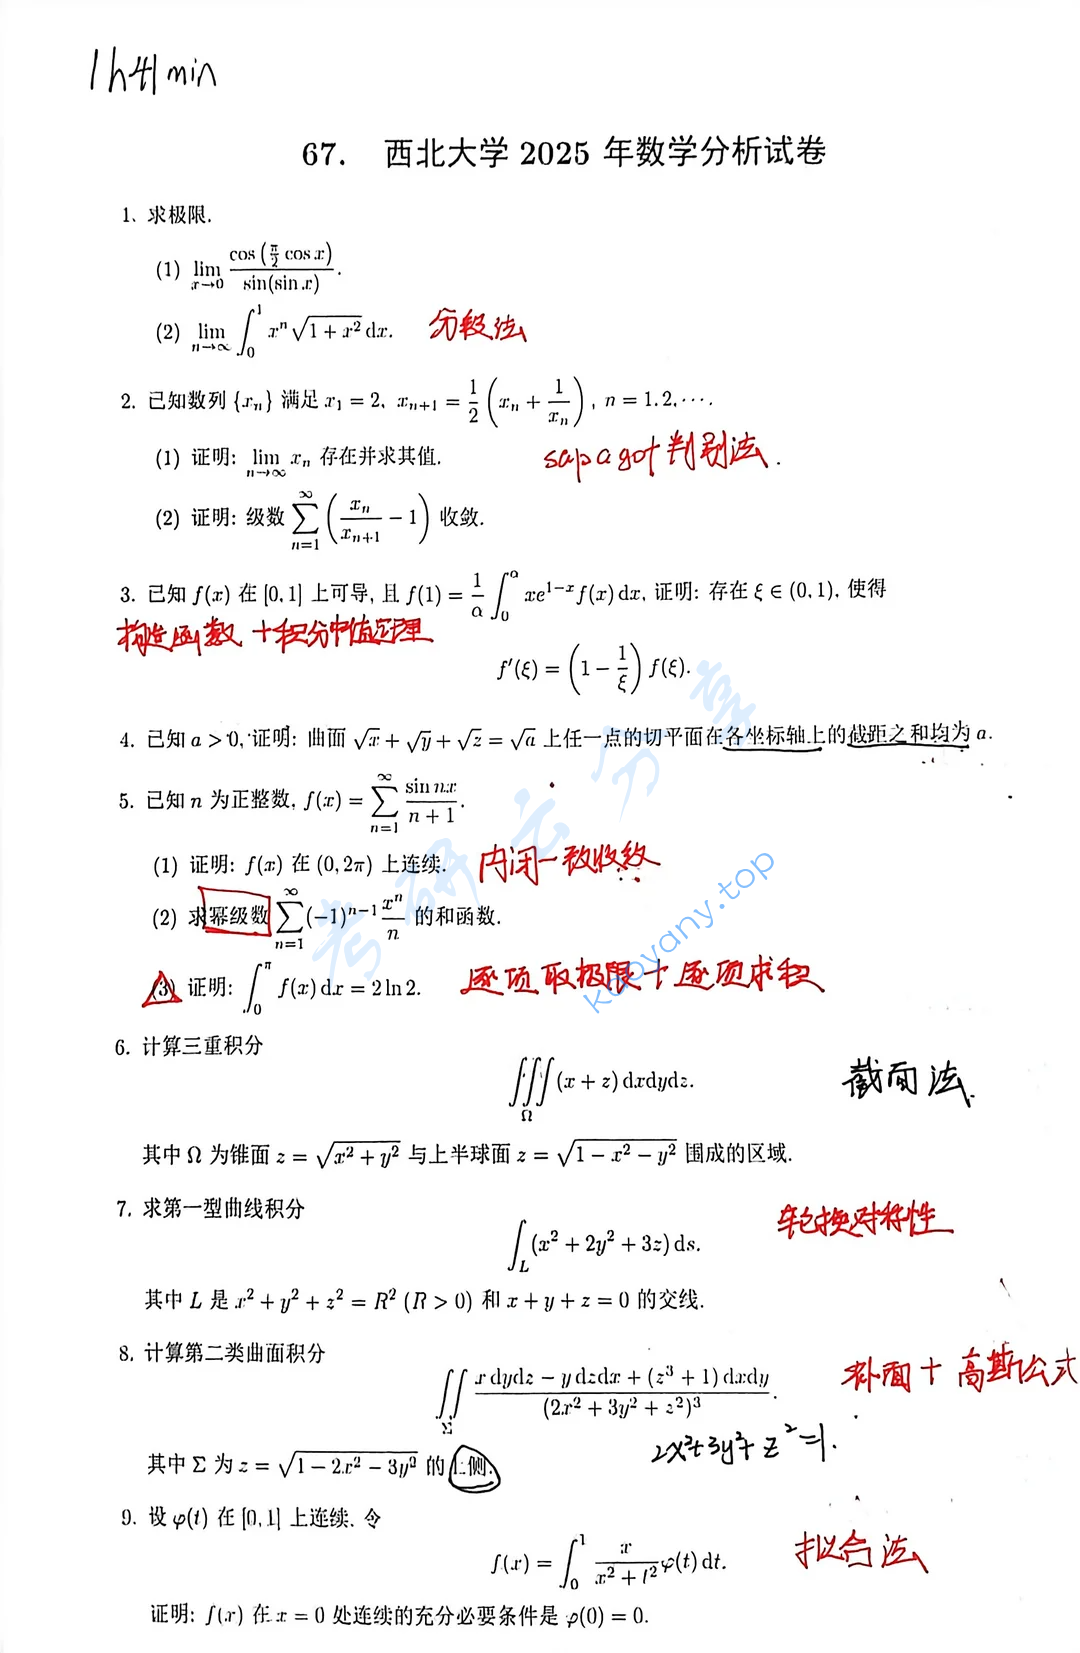 1h41min
67. 西北大学 2025 年数学分析试卷
1. 求极限.
(1) lim_{x→0} cos(π/2 cos x) / sin(sin x).
(2) lim_{n→∞} ∫_0^1 x^n √(1+x²) dx. 分段法
2. 已知数列 {x_n} 满足 x_1 = 2, x_{n+1} = 1/2 (x_n + 1/x_n), n = 1.2.⋯.
(1) 证明: lim_{n→∞} x_n 存在并求其值. sapagot判别法.
(2) 证明: 级数 ∑_{n=1}^∞ (x_n/x_{n+1} − 1) 收敛.
3. 已知 f(x) 在 [0,1] 上可导, 且 f(1) = 1/α ∫_0^α xe^{1−x} f(x) dx, 证明: 存在 ξ ∈ (0,1), 使得
构造函数+积分中值定理
f′(ξ) = (1 − 1/ξ) f(ξ).
4. 已知 a > 0, 证明: 曲面 √x + √y + √z = √a 上任一点的切平面在各坐标轴上的截距之和均为 a.
5. 已知 n 为正整数, f(x) = ∑_{n=1}^∞ sin nx / (n+1).
(1) 证明: f(x) 在 (0,2π) 上连续. 内闭一致收敛
(2) 求幂级数 ∑_{n=1}^∞ (−1)^{n−1} x^n/n 的和函数.
(3) 证明: ∫_0^π f(x) dx = 2 ln 2. 逐项取极限+逐项求积
6. 计算三重积分
∭_Ω (x + z) dxdydz. 截面法.
其中 Ω 为锥面 z = √(x²+y²) 与上半球面 z = √(1−x²−y²) 围成的区域.
7. 求第一型曲线积分
∫_L (x² + 2y² + 3z) ds. 轮换对称性
其中 L 是 x² + y² + z² = R² (R > 0) 和 x + y + z = 0 的交线.
8. 计算第二类曲面积分
∬_Σ (x dydz − y dzdx + (z³ + 1) dxdy) / (2x² + 3y² + z²)³. 补面+高斯公式
2x²+3y²+z²=1.
其中 Σ 为 z = √(1−2x²−3y²) 的上侧.
9. 设 φ(t) 在 [0,1] 上连续. 令
f(x) = ∫_0^1 x/(x²+t²) φ(t) dt. 拟合法
证明: f(x) 在 x = 0 处连续的充分必要条件是 φ(0) = 0.
考研云分享
kaoyany.top